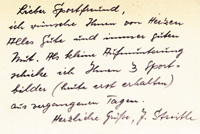 Lieber Sportfreund,
ich wünsche Ihnen von Herzen
Alles Gute und immer guten
Mut. Als kleine Aufmunterung
schicke ich Ihnen 3 Sport-
bilder (heute erst erhalten)
aus vergangenen Tagen.
Herzliche Grüße, J.